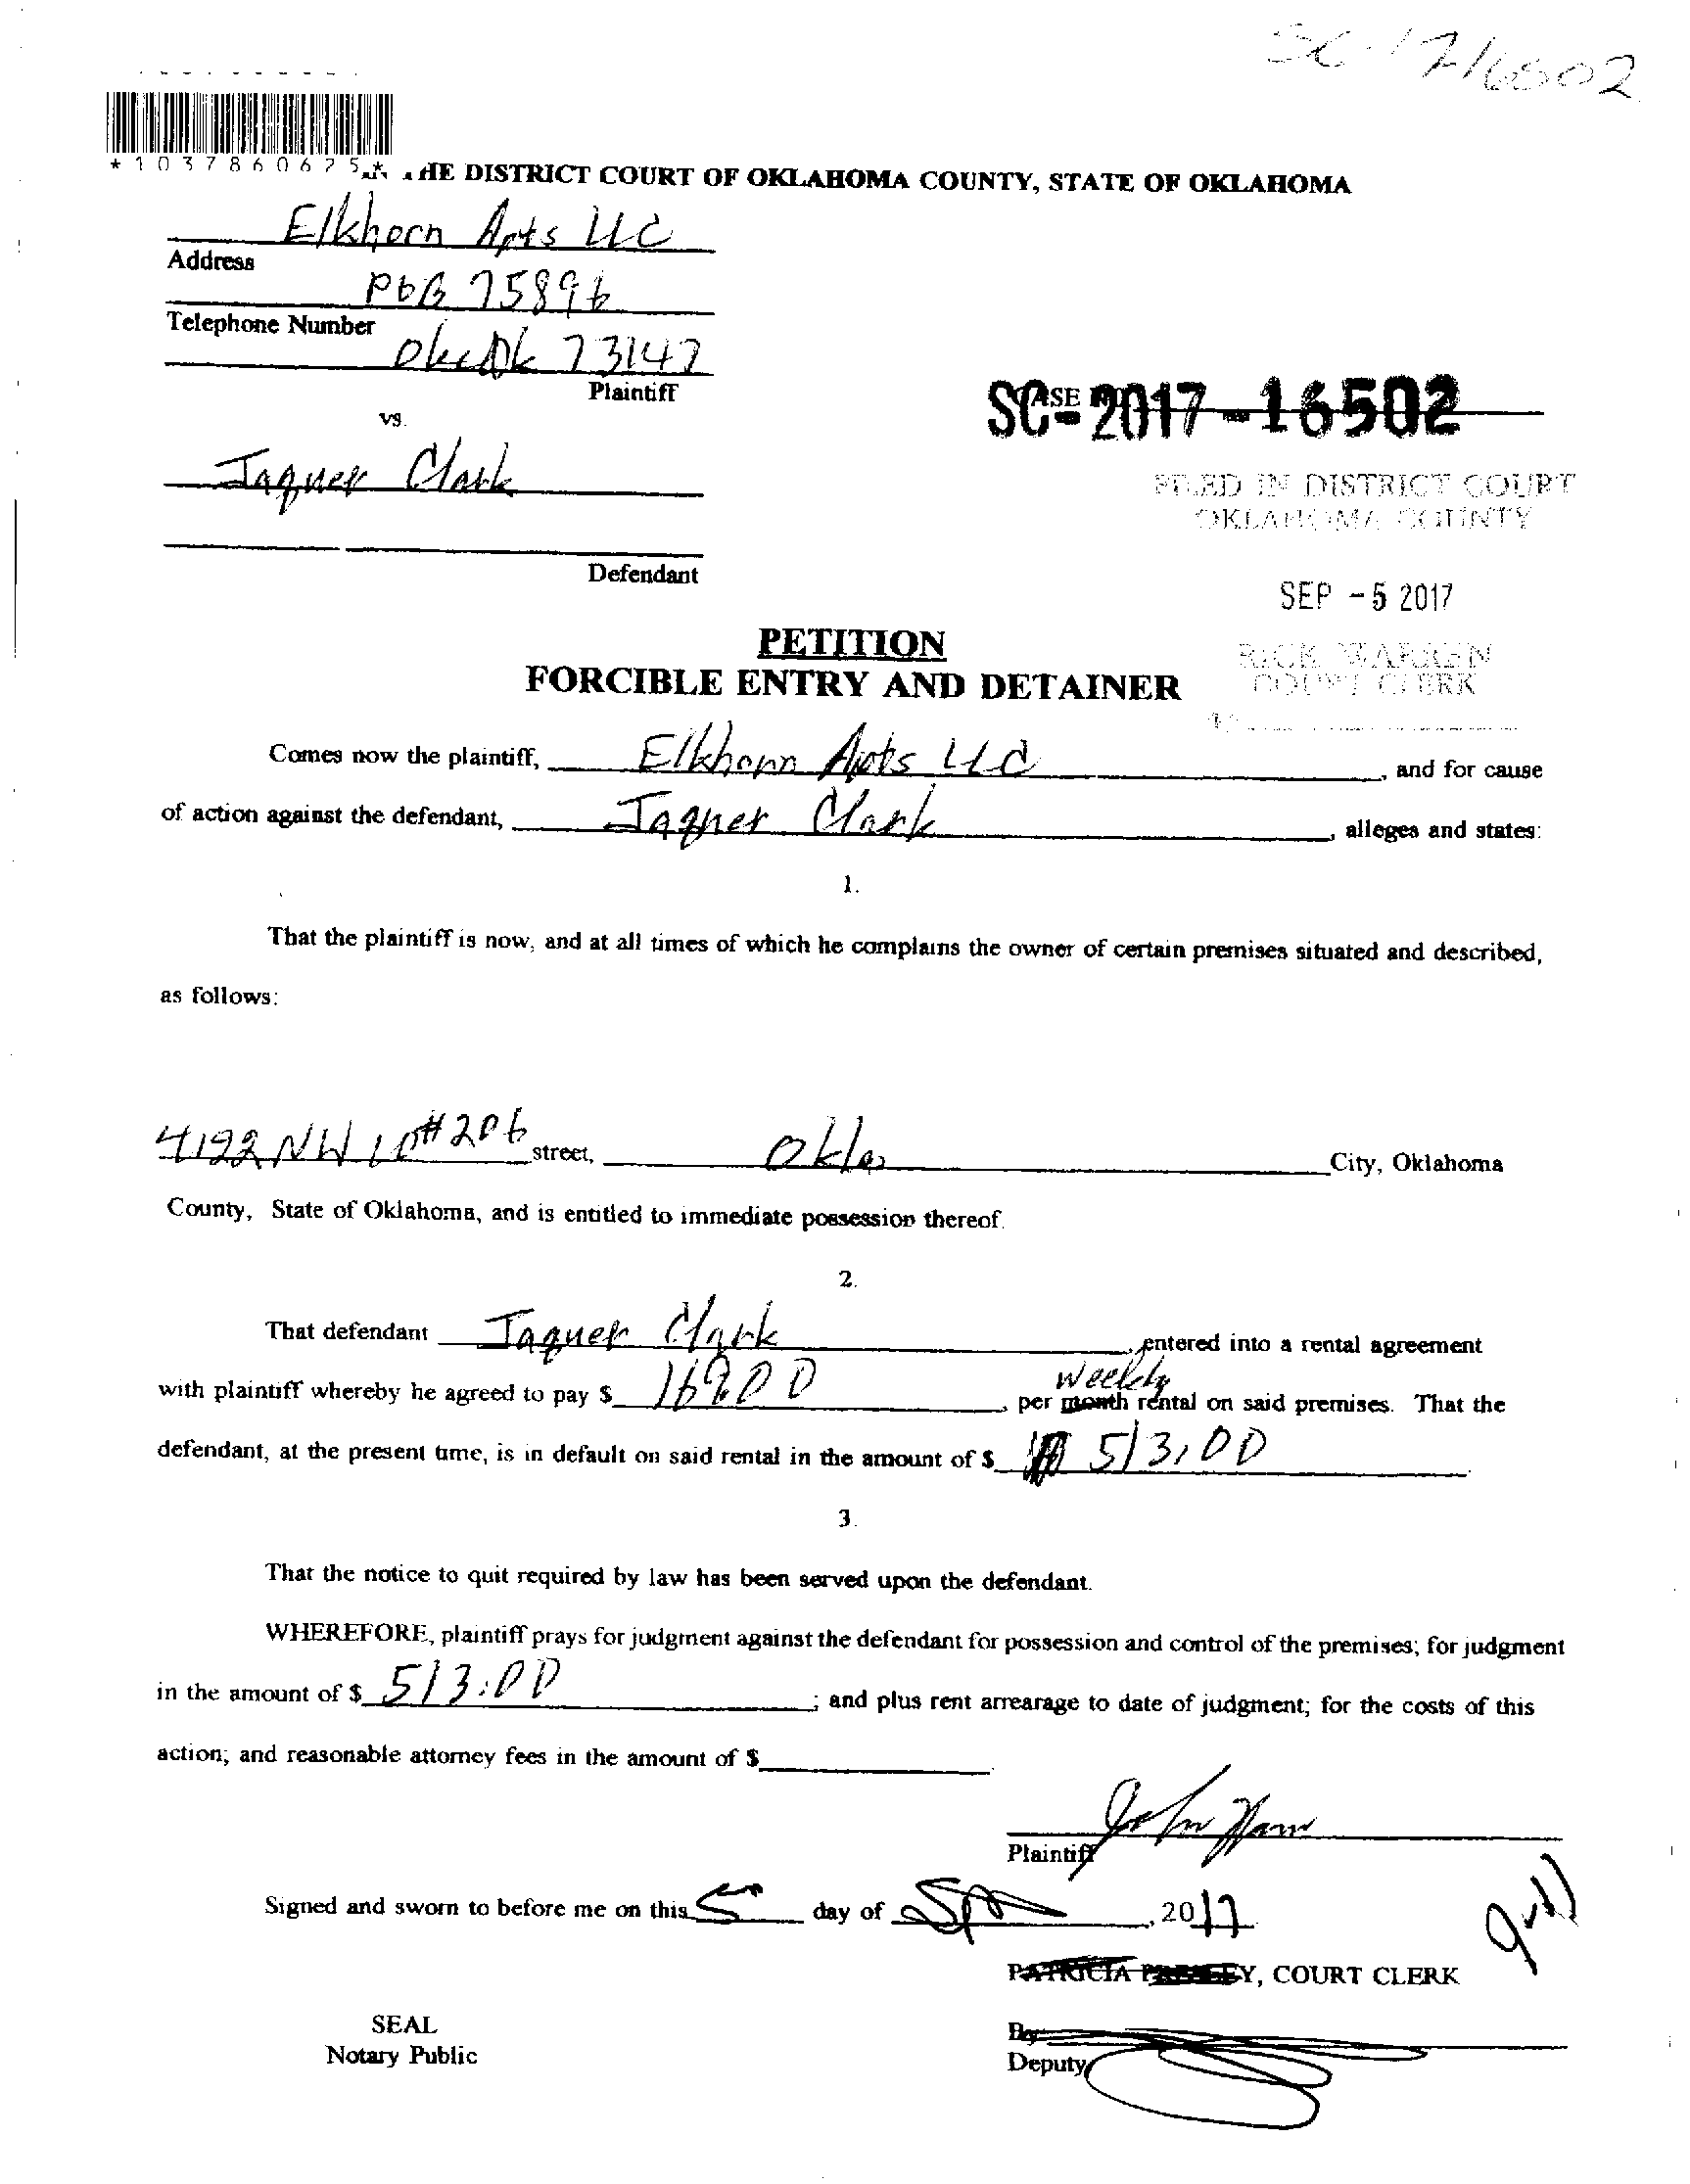 SC-1716502
*1037860625*
HE DISTRICT COURT OF OKLAHOMA COUNTY, STATE OF OKLAHOMA
Elkhorn Apts LLC
Address
POB 75896
Telephone Number
Okc Ok 73147
Plaintiff
vs.
SC-2017-16502
Jaquer Clark
FILED IN DISTRICT COURT
OKLAHOMA COUNTY
Defendant
SEP -5 2017
PETITION
RICK WARREN
FORCIBLE ENTRY AND DETAINER
COURT CLERK
Comes now the plaintiff, Elkhorn Apts LLC, and for cause
of action against the defendant, Jaquer Clark, alleges and states:
1.
That the plaintiff is now, and at all times of which he complains the owner of certain premises situated and described,
as follows:
4122 NW 10 #206 street, Okla City, Oklahoma
County, State of Oklahoma, and is entitled to immediate possession thereof.
2.
That defendant Jaquer Clark, entered into a rental agreement
weekly
with plaintiff whereby he agreed to pay $ , per month rental on said premises. That the
defendant, at the present time, is in default on said rental in the amount of $ 513.00
3.
That the notice to quit required by law has been served upon the defendant.
WHEREFORE, plaintiff prays for judgment against the defendant for possession and control of the premises; for judgment
in the amount of $ 513.00; and plus rent arrearage to date of judgment; for the costs of this
action; and reasonable attorney fees in the amount of $
Plaintiff
Signed and sworn to before me on this 5 day of , 2017
PATRICIA PRESLEY, COURT CLERK
SEAL
By
Notary Public
Deputy